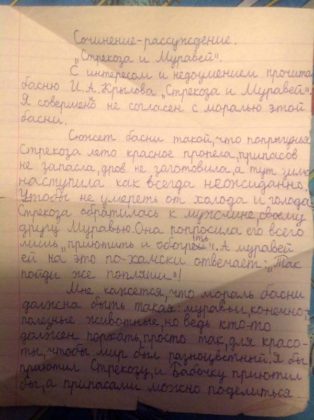 Сочинение-рассуждение.
„Стрекоза и Муравей".
С интересом и недоумением прочитал
басню И.А.Крылова „Стрекоза и Муравей".
Я совершено не согласен с моралью этой
басни.
Сюжет басни такой, что попрыгунья
Стрекоза лето красное пропела, припасов
не запасла, дров не заготовила, а тут зима
наступила как всегда неожиданно.
Чтобы не умереть от холода и голода
Стрекоза обратилась к мужчине, своему
другу Муравью. Она попросила его всего
лишь „приютить и обогреть". А муравей
ей на это по-хамски отвечает: „Так
пойди же попляши"!
Мне кажется, что мораль басни
должна быть такая: муравьи, конечно,
полезные животные, но ведь кто-то
должен порхать, просто так, для красо-
ты, чтобы мир был разноцветней. Я бы
приютил Стрекозу, и Бабочку приютил
бы, а припасами можно поделиться